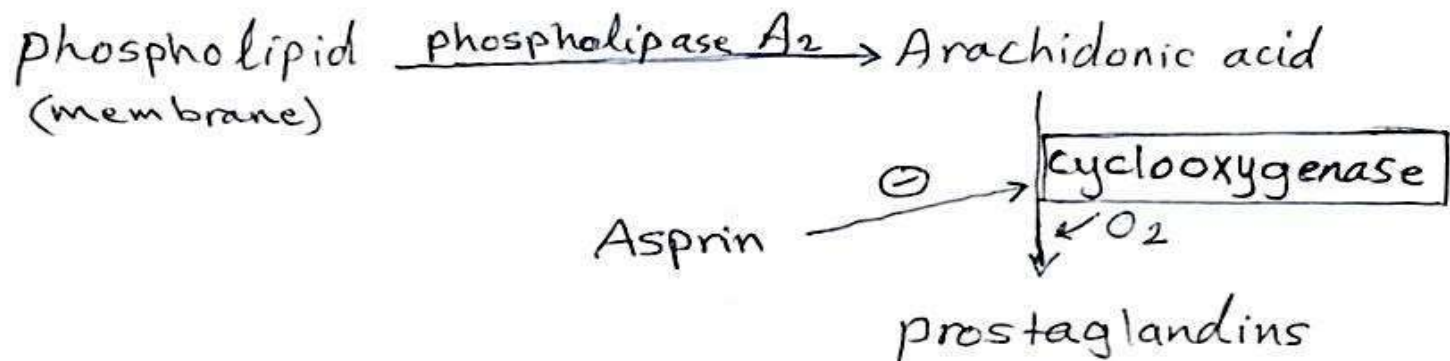 phospholipid phospholipase A2 → Arachidonic acid
(membrane)
cyclooxygenase
⊖
Asprin
O2
prostaglandins